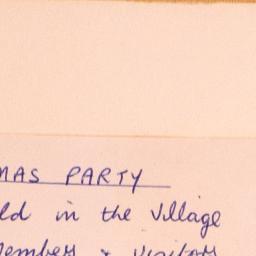 MAS PARTY
ld in the Village
Members & Visitors